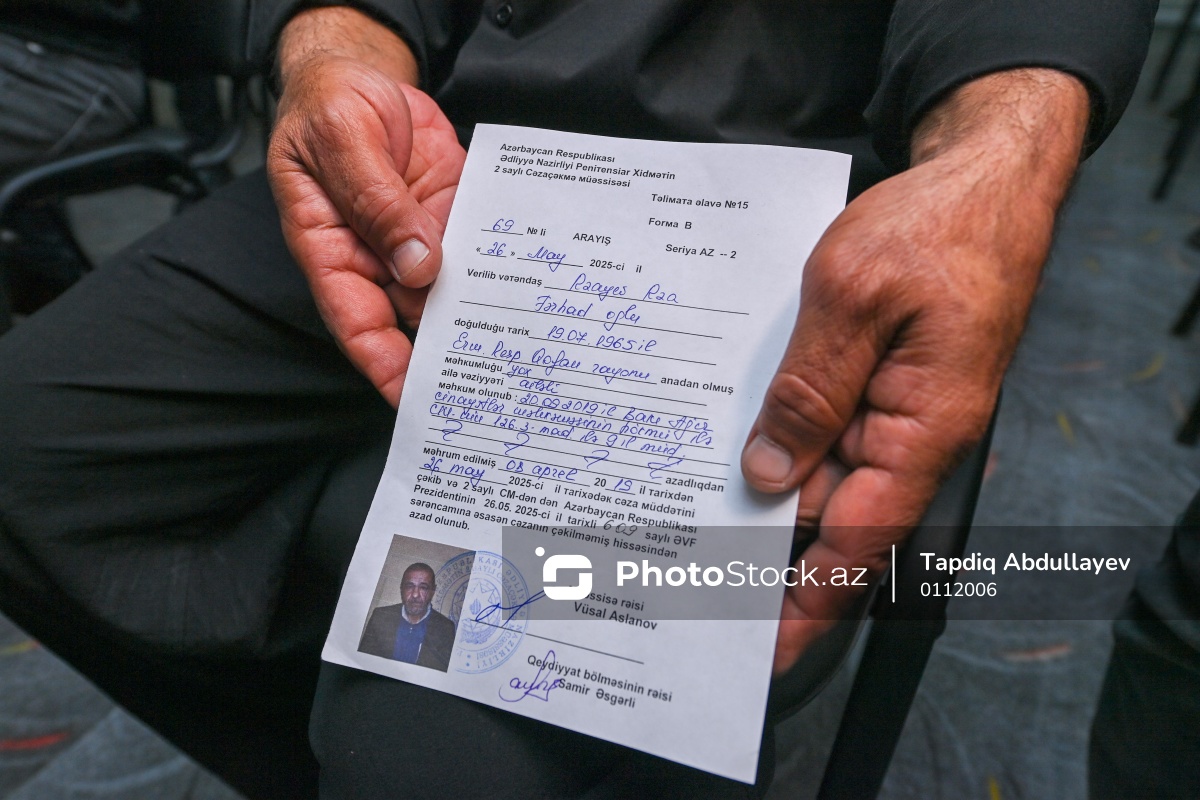 Azərbaycan Respublikası
Ədliyyə Nazirliyi Penitensiar Xidmətin
2 saylı Cəzaçəkmə müəssisəsi
Təlimata əlavə №15
Forma B
69 № li ARAYIŞ Seriya AZ -- 2
« 26 » May 2025-ci il
Verilib vətəndaş Rzayev Rza
Fərhad oğlu
doğulduğu tarix 19.07.1965 il
Erm. Resp. Qafan rayonu anadan olmuş
məhkumluğu yox
ailə vəziyyəti ailəli
məhkum olunub : 20.09.2019 il Bakı Ağır
cinayətlər məhkəməsinin hökmü ilə
CM-nin 126.3. mad ilə 9 il müd.
azadlıqdan
məhrum edilmiş 08 aprel 20 19 il tarixdən
26 may 2025-ci il tarixədək cəza müddətini
çəkib və 2 saylı CM-dən dən Azərbaycan Respublikası
Prezidentinin 26.05. 2025-ci il tarixli 609 saylı ƏVF
sərəncamına əsasən cəzanın çəkilməmiş hissəsindən
azad olunub.
PhotoStock.az
Tapdiq Abdullayev
0112006
ssisə rəisi
Vüsal Aslanov
Qeydiyyat bölməsinin rəisi
Samir Əsgərli